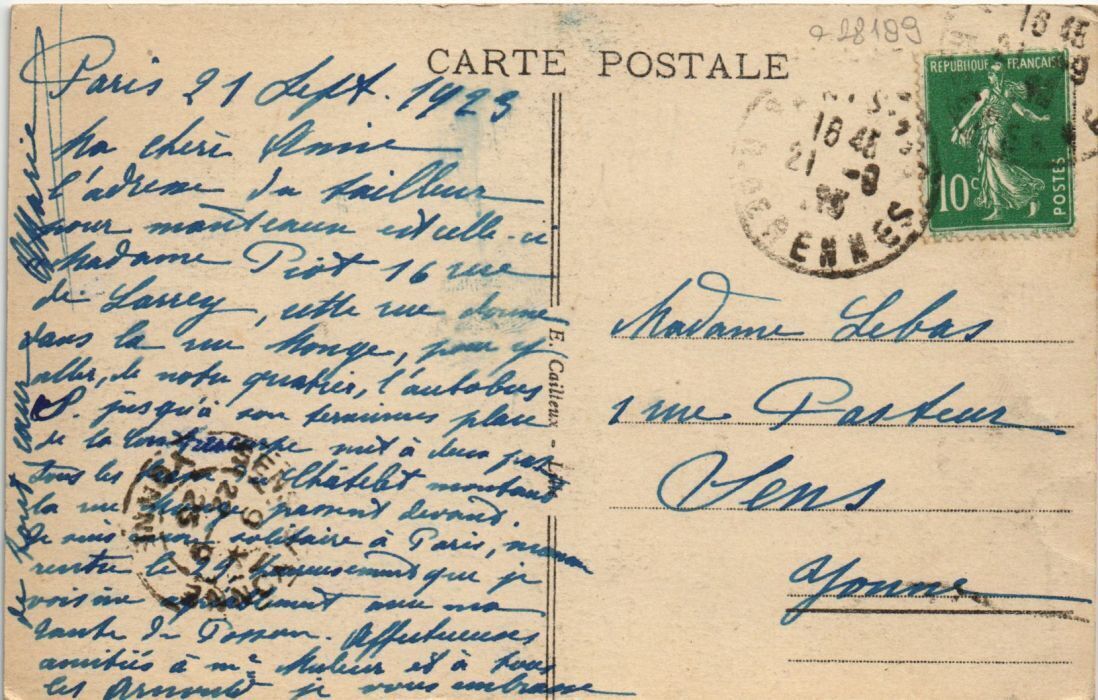 a 28199
CARTE POSTALE
REPUBLIQUE FRANÇAISE
10c
POSTES
16 45
21 -9
16 45
GARENNES
Paris 21 Sept. 1923
Ma chère Annie
l'adresse du tailleur
pour manteaux est celle-ci
Madame Piot 16 rue
de Larrey, cette rue donne
dans la rue Monge, pour y
aller, de notre quartier, l'autobus
S. jusqu'à son terminus place
de la Contrescarpe met à deux pas
tous les du Châtelet montant
la rue Monge passent devant.
Je suis solitaire à Paris, maman
rentre le 29 heureusement que je
voisine avec ma
tante de Affectueuses
amitiés à me et à tous
les Arnould je vous embrasse
de tout cœur
Marie
E. Cailleux -
Madame Lebas
1 rue Pasteur
Sens
Yonne
SENS
YONNE